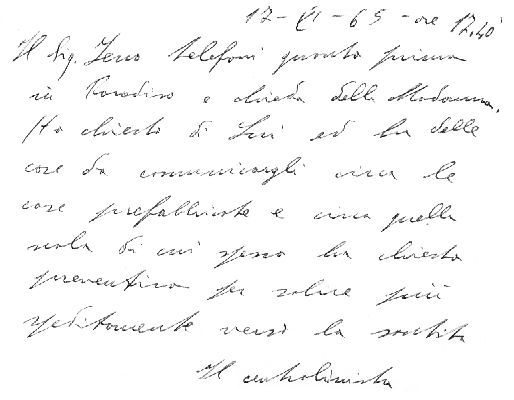 17-XI-65 - ore 17,40
Il Sig. Zeno telefoni quanto prima
in Paradiso e chieda della Madonna.
Ha chiesto di Lui ed ha delle
cose da comunicargli circa le
case prefabbricate e circa quella
scala di cui spesso ha chiesto
preventivo per salire più
speditamente verso la santità
Il centralinista